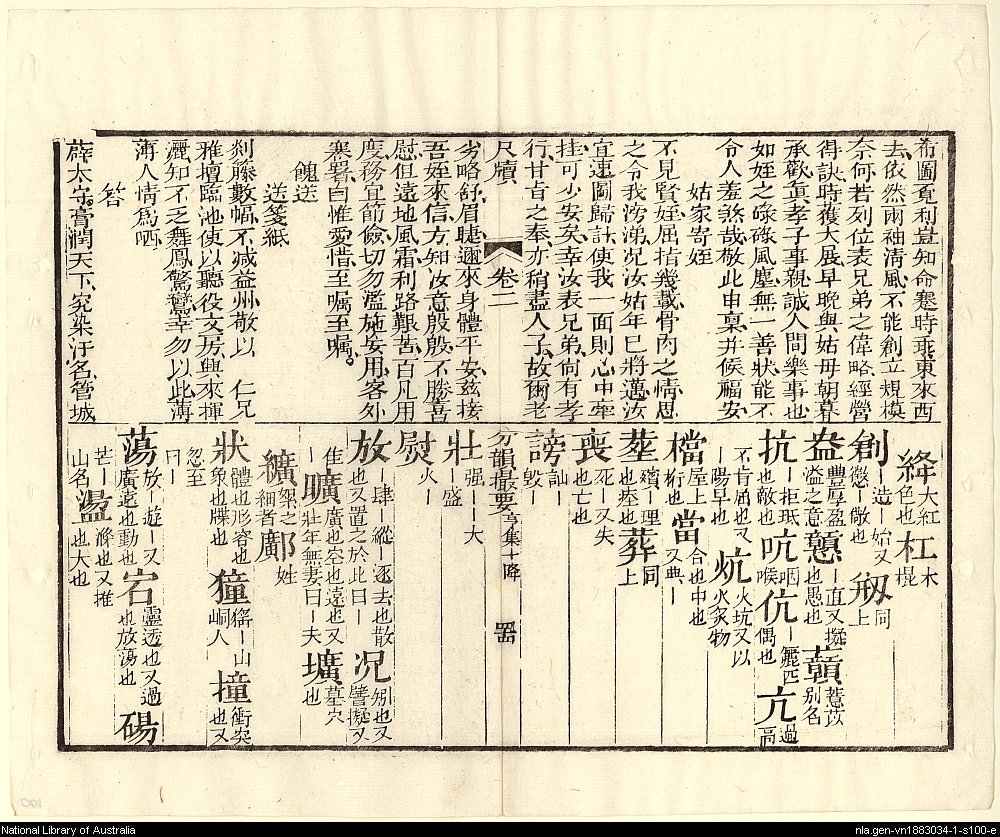 希圖覓利豈知命蹇時乖東來西
去依然兩袖清風不能創立規模
奈何若列位表兄弟之偉略經營
得訣時獲大展早晚與姑母朝暮
承歡眞孝子事親誠人間樂事也
如姪之碌碌風塵無一善狀能不
令人羞煞哉敬此申稟并候福安
姑家寄姪
不見賢姪屈指幾載骨肉之情思
之令我滂涕況汝姑年已將邁汝
宜速圖歸計使我一面則心中牽
挂可少安矣幸汝表兄弟尙有孝
行甘旨之奉亦稍盡人子故爾老
尺牘 卷二
劣略舒眉睫邇來身體平安茲接
吾姪來信方知汝意殷殷不勝喜
慰但遠地風霜利路艱苦百凡用
度務宜節儉切勿濫施妄用客外
寒暑自惟愛惜至囑至囑
餽送
送箋紙
剡籐數幅不減益州敬以 仁兄
雅壇臨池使以聽役文房興來揮
灑知不乏舞鳳驚鸞幸勿以此薄
薄人情爲哂
答
薛太守膏潤天下究染汙名管城
絳大紅色也杠木棍
創造丨始又懲丨敵也剏同上
盎豐厚盈溢之意戇丨直又擬也愚也贑薏苡别名
抗丨拒抵也敵也吭咽喉伉丨儷匹偶也亢過高
不肯屈也又丨陽旱也炕火坑又以火炙物
檔屋上桁也當合也中也又典丨
塟殯丨埋也瘞也葬同上
喪死丨又失也亡也
謗訕丨毁丨
分韻撮要 亨集十降 四五
壯强丨丨大丨盛
熨火丨
放丨肆丨縱丨逐去也散也又置之於此曰丨况矧也又譬擬又
隹丨廣也空也遠也又丨曠丨壯年無妻曰丨夫壙墓穴也
纊絮之細者鄺姓
狀體也形容也象也牒也獞猺丨山峒人撞衝突也又
忽至曰丨
蕩放丨遊丨又廣遠也動也宕靈透也又過也放蕩也碭
芒丨山名盪滌也又推也大也
National Library of Australia
nla.gen-vn1883034-1-s100-e